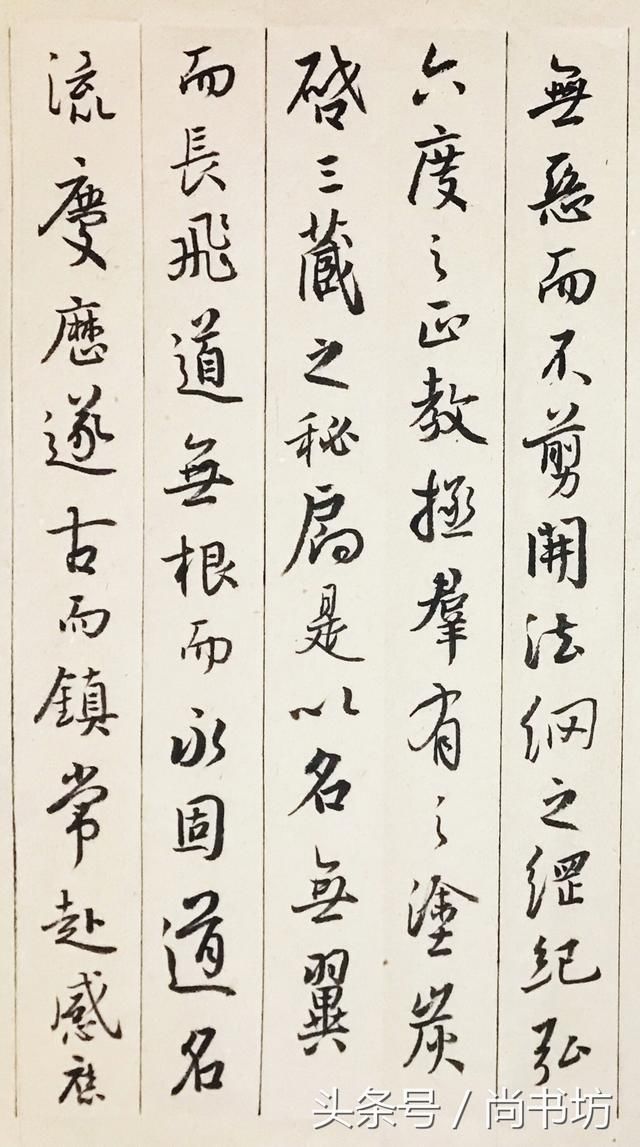 無惡而不剪開法網之綱紀弘
六度之正教拯羣有之塗炭
啓三藏之秘扃是以名無翼
而長飛道無根而永固道名
流慶歷遂古而鎮常赴感應
头条号 / 尚书坊